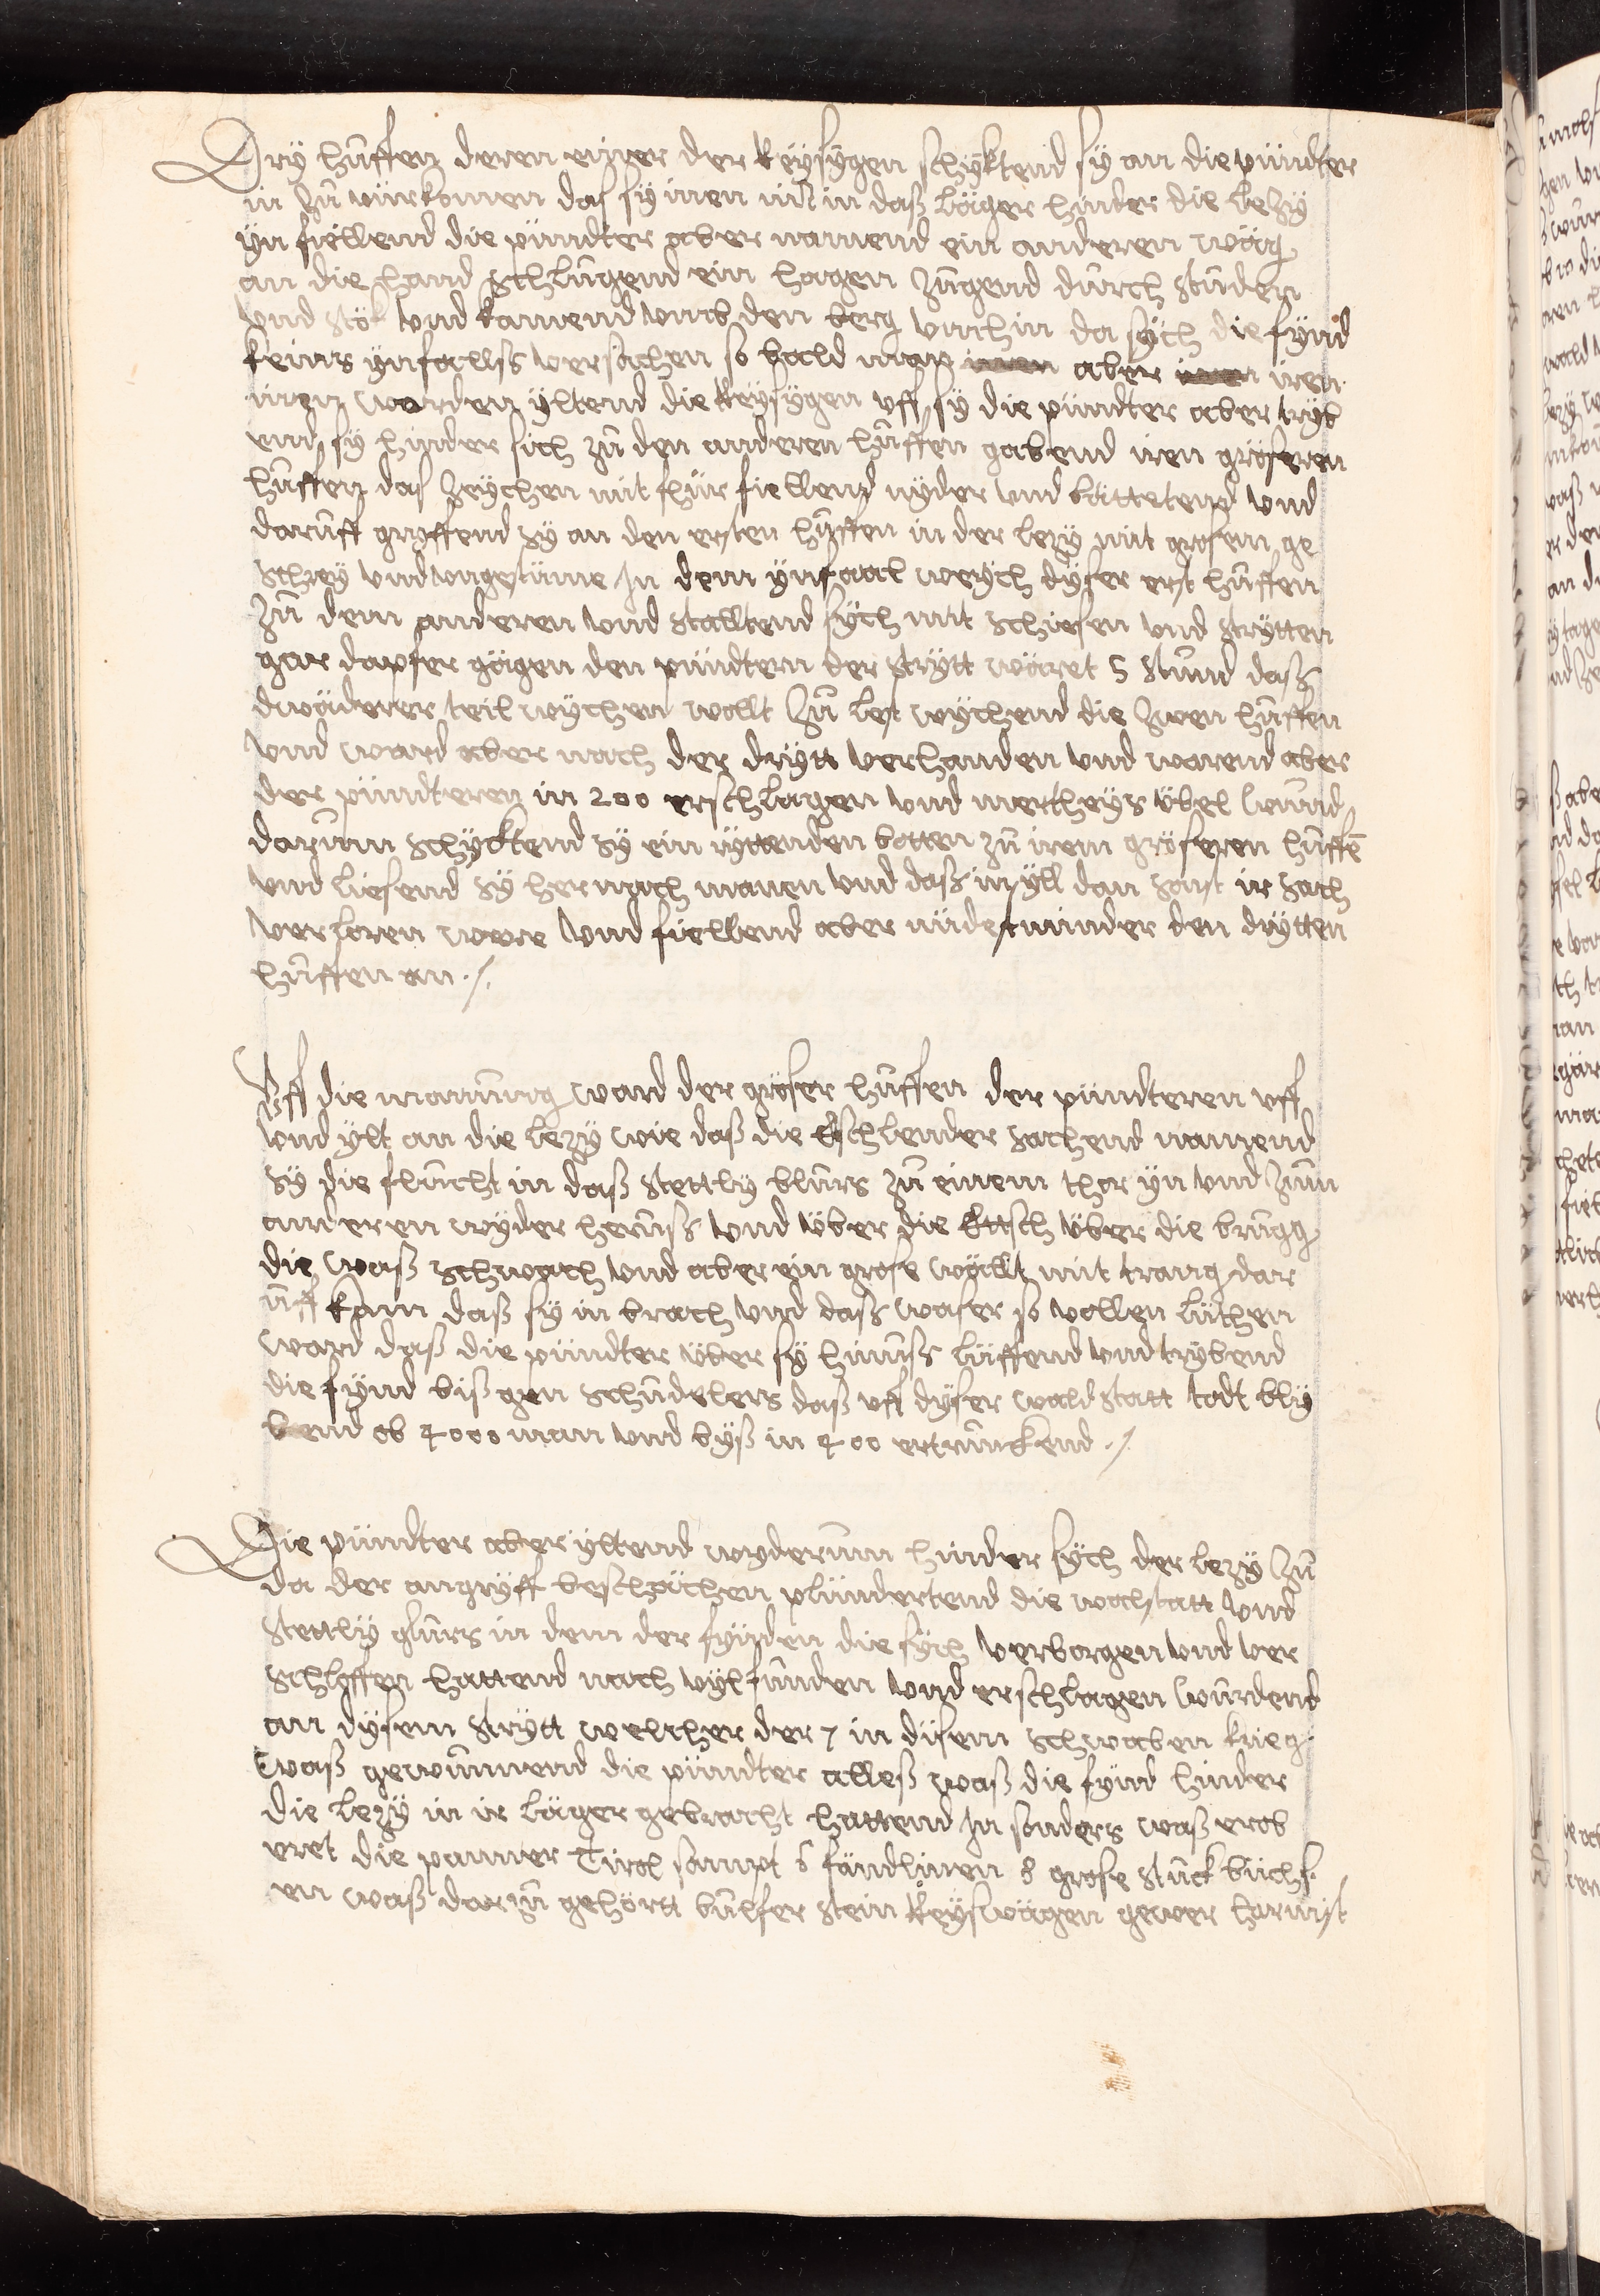 Dry hůffen deren einer der Reysygen schyktend sy an die pündter
in zů vürkomen das sy inen nit in daß läger hinder die lezy
yn fiellend die pündter aber namend ein anderen wäg
an die hand schlůgend ein hagen zůgend durch studen
vnd stök vnd kamend vmb den berg vmhin da sych die fynd
keins ynfallss versachen so bald man aber iren
innen worden yltend die Reysygen vff sy die pündter aber tryb
end sy hinder sich zů den anderen hůffen gabend iren gröseren
hůffen das zeychen mit fhür fiellend nyder vnd bättetend vnd
daruff gryffend sy an den ersten hůffen in der lezy mit grosem ge
schrey vnd vngestüme Jn dem ynfaal weych dyser erst hůffen
zů dem anderen vnd stalltend sych mit schiesen vnd strytten
gar dapfer gägen den pündtern der strytt wäret 5 stund daß
dwäderer teil wychen wollt zů lest wychend die zwen hůffen
vnd ward aber nach der drytt verhanden vnd warend aber
der pündteren in 200 erschlagen vnd mertheyls übel wund
darum schycktend sy ein ryttenden botten zů irem gröseren hůffē
vnd liesend sy hernach manen vnd daß in yll dan sonst ir sach
verloren were vnd fiellend aber nüdestminder den drytten
hůffen an ./.
Vff die manung ward der gröser hůffen der pündteren vff
vnd ylt an die lezy wie daß die Etschlender sachend namend
sy die flucht in daß stettly glurs zů einem thor yn vnd zum
anderen wyder heruss vnd über die Ettsch über die brugg
die waß schwach vnd aber ein grose wällt mit trang dar
uff kam daß sy in brach vnd daß waser so vollen lüthen
ward daß die pündter über sy hinuss lüffend vnd trybend
die fynd biß gen schluderns daß vff dyser walstatt todt bly
bend ob 4000 man vnd byß in 400 ertrunckend ./.
Die pündter aber yltend wyderum hinder sych der lezy zů
da der angryff beschächen plündertend die walstatt vnd
stettly glurs in dem der fynden die sych verborgen vnd ver
schloffen hattend nach vyl funden vnd erschlagen wurdend
an dysem strytt welcher der 7 in disem schwaben krieg
waß gewunnend die pündter alleß waß die fynd hinder
die lezy in ir läger gebracht hattend Jn sonders waß erob
eret die panner Tirol sampt 6 fändlinen 8 grose stuck büchs
en waß darzů gehörtt bulfer stein Reyswägen gewer harnist